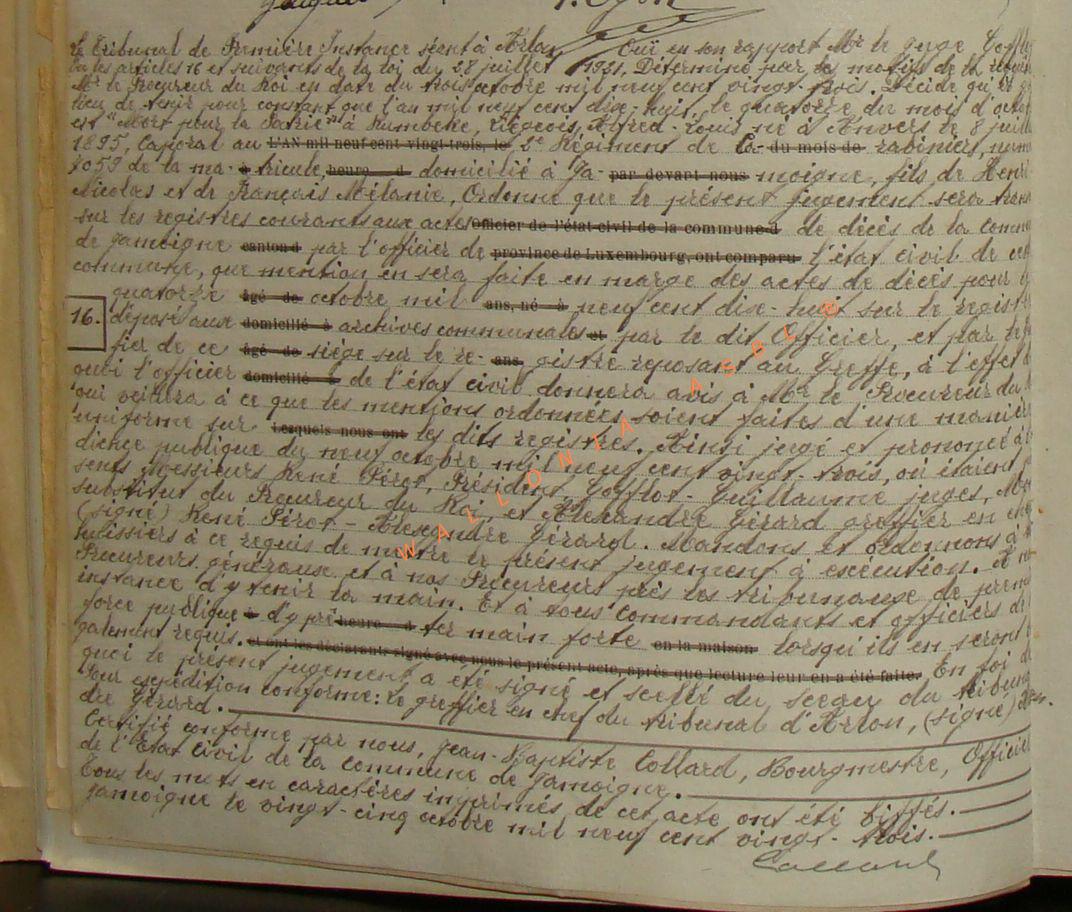 Le Tribunal de Première Instance séant à Arlon, Oui en son rapport Mr le juge
Vu les articles 16 et suivants de la loi du 28 juillet 1921, Déterminé par les motifs de la
Mr le Procureur du Roi en date du trois octobre mil neuf cent vingt-trois. Décide qu'il y
lieu de tenir pour constant que l'an mil neuf cent dix-huit, le quatorze du mois d'
est "Mort pour la Patrie" à Rumbeke, Liégeois, Alfred-Louis né à Anvers le 8
1895, Caporal au L'AN mil neuf cent vingt-trois, le 2e Régiment de Ca- du mois de rabiniers,
7059 de la ma- à tricule, heure d domicilié à Ja- par devant nous moigne, fils de Henri
Nicolas et de François Mélanie, Ordonne que le présent jugement sera
sur les registres courants aux actes Officier de l'état civil de la commune d de décès de la
de Jamoigne canton d par l'officier de province de Luxembourg, ont comparu l'état civil de
commune, que mention en sera faite en marge des actes de décès pour
quatorze âgé de octobre mil ans, né à neuf cent dix-huit sur le
16. déposé aux domicilié à archives communales et par le dit Officier, et par le
fier de ce âgé de siège sur le re- ans gistre reposant au Greffe, à l'effet
quoi l'officier domicilié à de l'état civil donnera avis à Mr le Procureur du
qui veillera à ce que les mentions ordonnées soient faites d'une
uniforme sur Lesquels nous ont les dits registres. Ainsi jugé et prononcé à
dience publique du neuf octobre mil neuf cent vingt-trois, où étaient
sents Messieurs René Pérot, Président, Guillaume juges,
substitut du Procureur du Roi et Alexandre Gérard greffier en
(signé) René Pérot - Alexandre Gérard. Mandons et ordonnons à
huissiers à ce requis de mettre le présent jugement à exécution. A
Procureurs généraux et à nos Procureurs près les tribunaux de
instance d'y tenir la main. Et à tous commandants et officiers de
force publique à d'y prê heure d ter main forte en la maison lorsqu'ils en seront
galement requis. et ont les déclarants signé avec nous le présent acte, après que lecture leur en a été faite. En foi de
quoi le présent jugement a été signé et scellé du sceau du
Pour expédition conforme: le greffier en chef du tribunal d'Arlon, (signé)
dre Gérard.
Certifié conforme par nous, Jean-Baptiste Collard, Bourgmestre, Officier
de l'Etat Civil de la commune de Jamoigne.
Tous les mots en caractères imprimés de cet acte ont été biffés.
Jamoigne le vingt-cinq octobre mil neuf cent vingt-trois.
Collard
WALLONIA ASBL ©